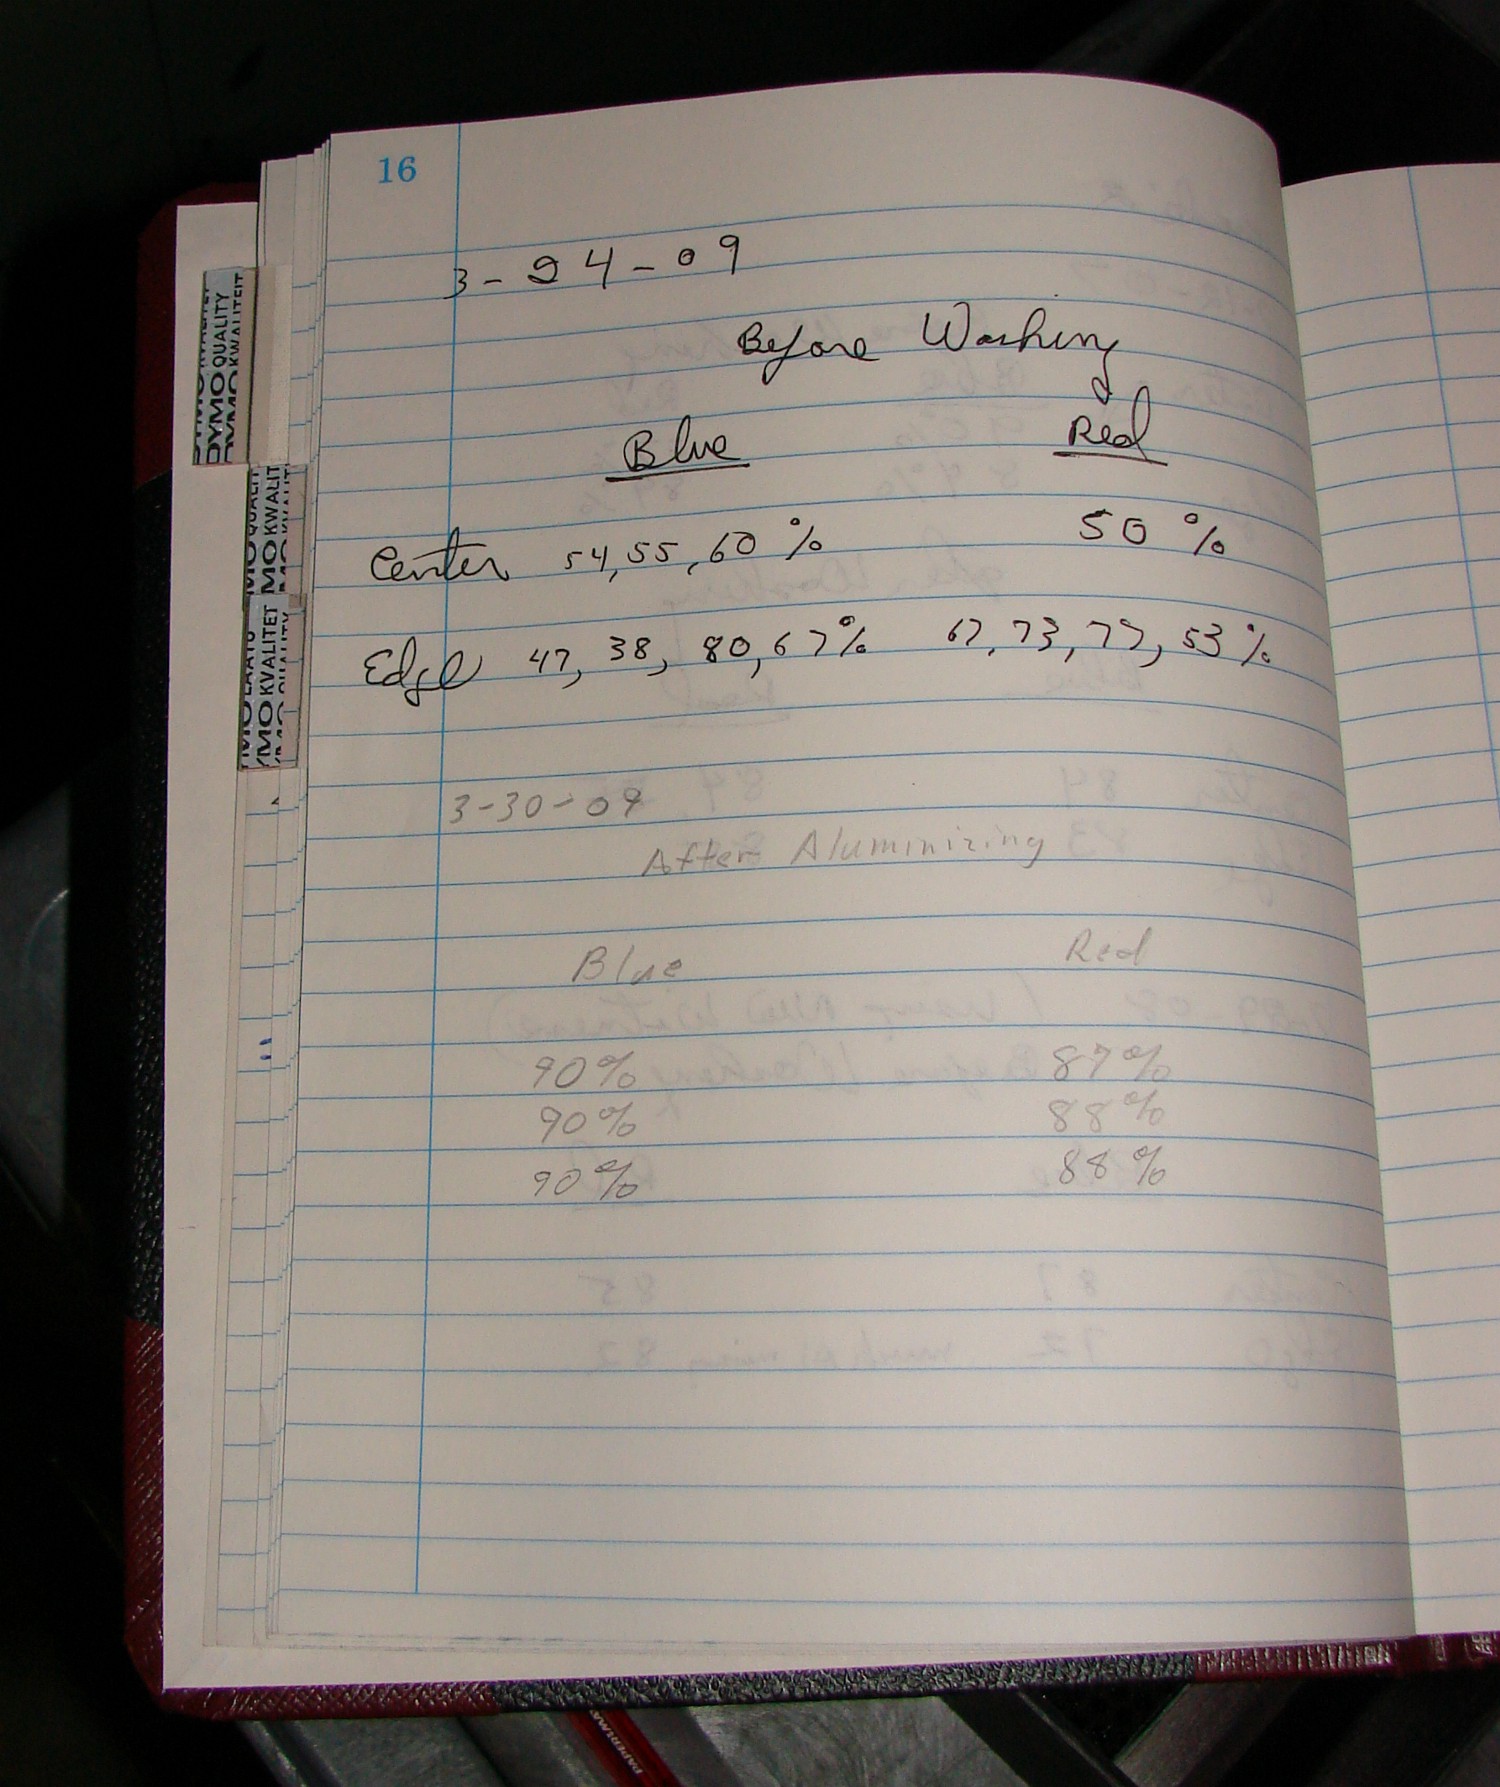 16
3-24-09
Before Washing
Blue Red
Center 54, 55, 60 % 50 %
Edge 47, 38, 80, 67% 67, 73, 77, 53%
3-30-09
After Aluminizing
Blue Red
90% 87%
90% 88%
90% 88%
DYMO QUALITY
DYMO KWALITEIT
MO QUALITY
MO KWALIT
MO KVALITET